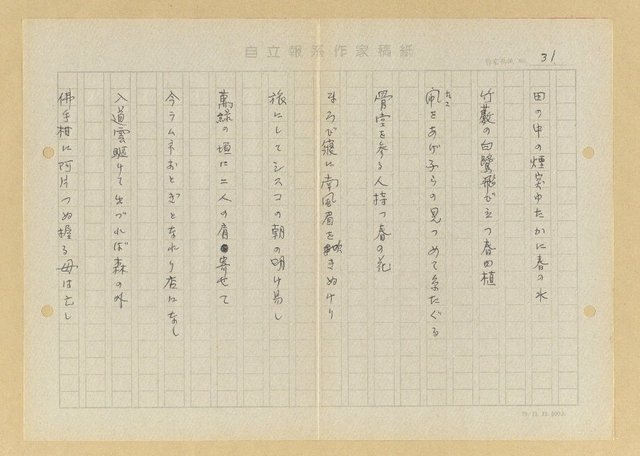 自立報系作家稿紙
31
田の中の煙突ゆたかに春の水
竹藪の白鷺飛び立つ春田植
凧をあげ子らの見つめて糸たぐる
たこ
骨堂を参る人持つ春の花
まろび寝に南風眉を吹きぬけり
旅にしてシスコの朝の明け易し
萬緑の垣に二人の肩寄せて
今ラムネおとぎとなれり店になし
入道雲駆けて出づれば森の外
佛手柑に阿片つめ握る母は亡し